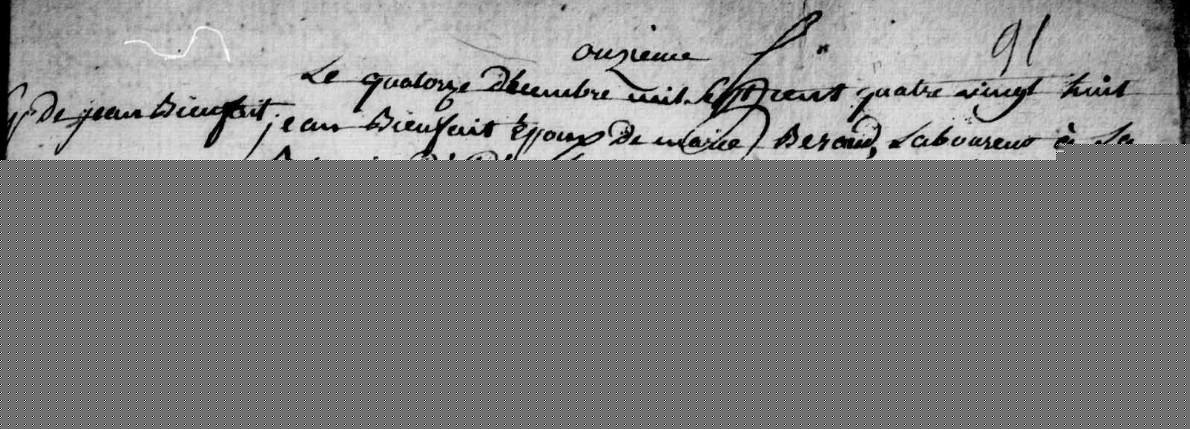 onzieme
91
Le quatorze décembre mil sept cent quatre vingt huit
Sp. de jean Bienfait
jean Bienfait Epoux de marie Beraud, Laboureur à La